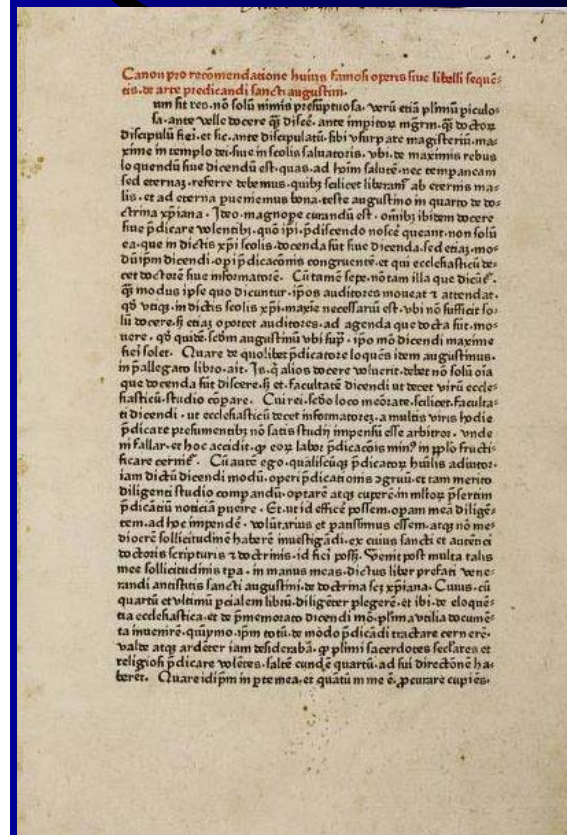 Canon pro recōmendatione huius famosi operis siue libelli sequē-
tis. de arte predicandi sancti augustini.
um sit res. nō solū nimis presūptuosa. verū etiā plimū piculo-
sa. ante velle docere qȝ discē. ante impitor mgrm. qȝ doctor
discipulū fiei. et sic. ante discipulatū. sibi vsurpare magisteriū. ma-
xime in templo dei. siue in scolis saluatoris. vbi. de maximis rebus
loquendū siue dicendū est. quas. ad hoīm salutē. nec temporaneam
sed eternaȝ. referre debemus. quibȝ scilicet liberant ab eternis ma-
lis. et ad eterna pueniemus bona. teste augustino in quarto de do-
ctrina xp̄iana. Ideo. magnope curandū est. omībȝ ibitem docere
siue p̄dicare volentibȝ. quō ip̄i. p̄discendo noscē queant. non solū
ea. que in dictis xp̄i scolis. docenda sūt siue dicenda. sed etiaȝ. mo-
dū ip̄m dicendi. opi p̄dicacōnis congruentē. et qui ecclesiasticū de-
cet doctorē siue informatorē. Cū tamē sepe. nō tam illa que dicūt.
qȝ modus ipse quo dicuntur. ip̄os auditores moueat ⁊ attendat.
qd̄ vtiqȝ. in dictis scolis xp̄i. maxīe necessariū est. vbi nō sufficit so-
lū docere. sȝ etiaȝ oportet auditores. ad agenda que docta sūt. mo-
uere. qd̄ quidē. scdm augustinū vbi sup̄. ip̄o mō dicendi maxime
fiei solet. Quare de quolibet p̄dicatore loquēs idem augustinus.
in p̄allegato libro. ait. Is. q̄ alios docere voluerit. debet nō solū oīa
que docenda sūt discere. sȝ et. facultatē dicendi ut decet virū eccle-
siasticū. studio cōpare. Cui rei. scdo loco meōrate. scilicet. faculta-
ti dicendi. ut ecclesiasticū decet informatoreȝ. a multis viris hodie
p̄dicare presumentibȝ nō satis studij impensū esse arbitror. vnde
ni fallar. et hoc accidit. qȝ eoꝝ labor p̄dicacōis minꝰ in pp̄lo fructi-
ficare cernit̄. Cū autē ego. qualiscūqȝ p̄dicatorȝ hūilis adiutor.
iam dictū dicendi modū. operi p̄dicationis ꝯgruū. et tam merito
diligenti studio compandū. optarē atqȝ cuperē. in mltoꝝ p̄sertim
p̄dicātiū noticiā puenire. Et. ut id efficē possem. opam mea diligē-
tem. ad hoc impendē. volūtarius et paratissimus essem. atqȝ nō me-
diocrē sollicitudinē haberē inuestigādi. ex cuius sancti et autētici
doctoris scripturis ⁊ doctrinis. id fiei possȝ. Venit post multa talis
mee sollicitudinis tpa. in manus meas. dictus liber prefati vene-
randi antistitis sancti augustini. de doctrina scȝ xp̄iana. Cuius. cū
quartū et vltimū p̄cialem librū. diligēter plegerē. et ibi. de eloquē-
tia ecclesiastica. et de p̄memorato dicendi mō. plīma vtilia documē-
ta inuenirē. quīymo. ip̄m totū. de modo p̄dicādi tractare cernerē.
valde atqȝ ardēter iam desiderabā. qȝ plīmi sacerdotes seclares et
religiosi p̄dicare volētes. saltē eundē quartū. ad sui directōnē ha-
berēt. Quare idip̄m in pte mea. et quātū in me ē. ꝓcurare cupiēs.